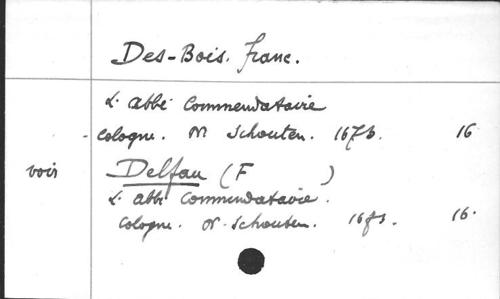 Des-Bois. franc.
L'abbé Commendataire
Cologne. N Schouten. 1673. 16
voir Delfau (F )
L'abbé Commendataire.
Cologne. N. Schouten. 1673. 16.